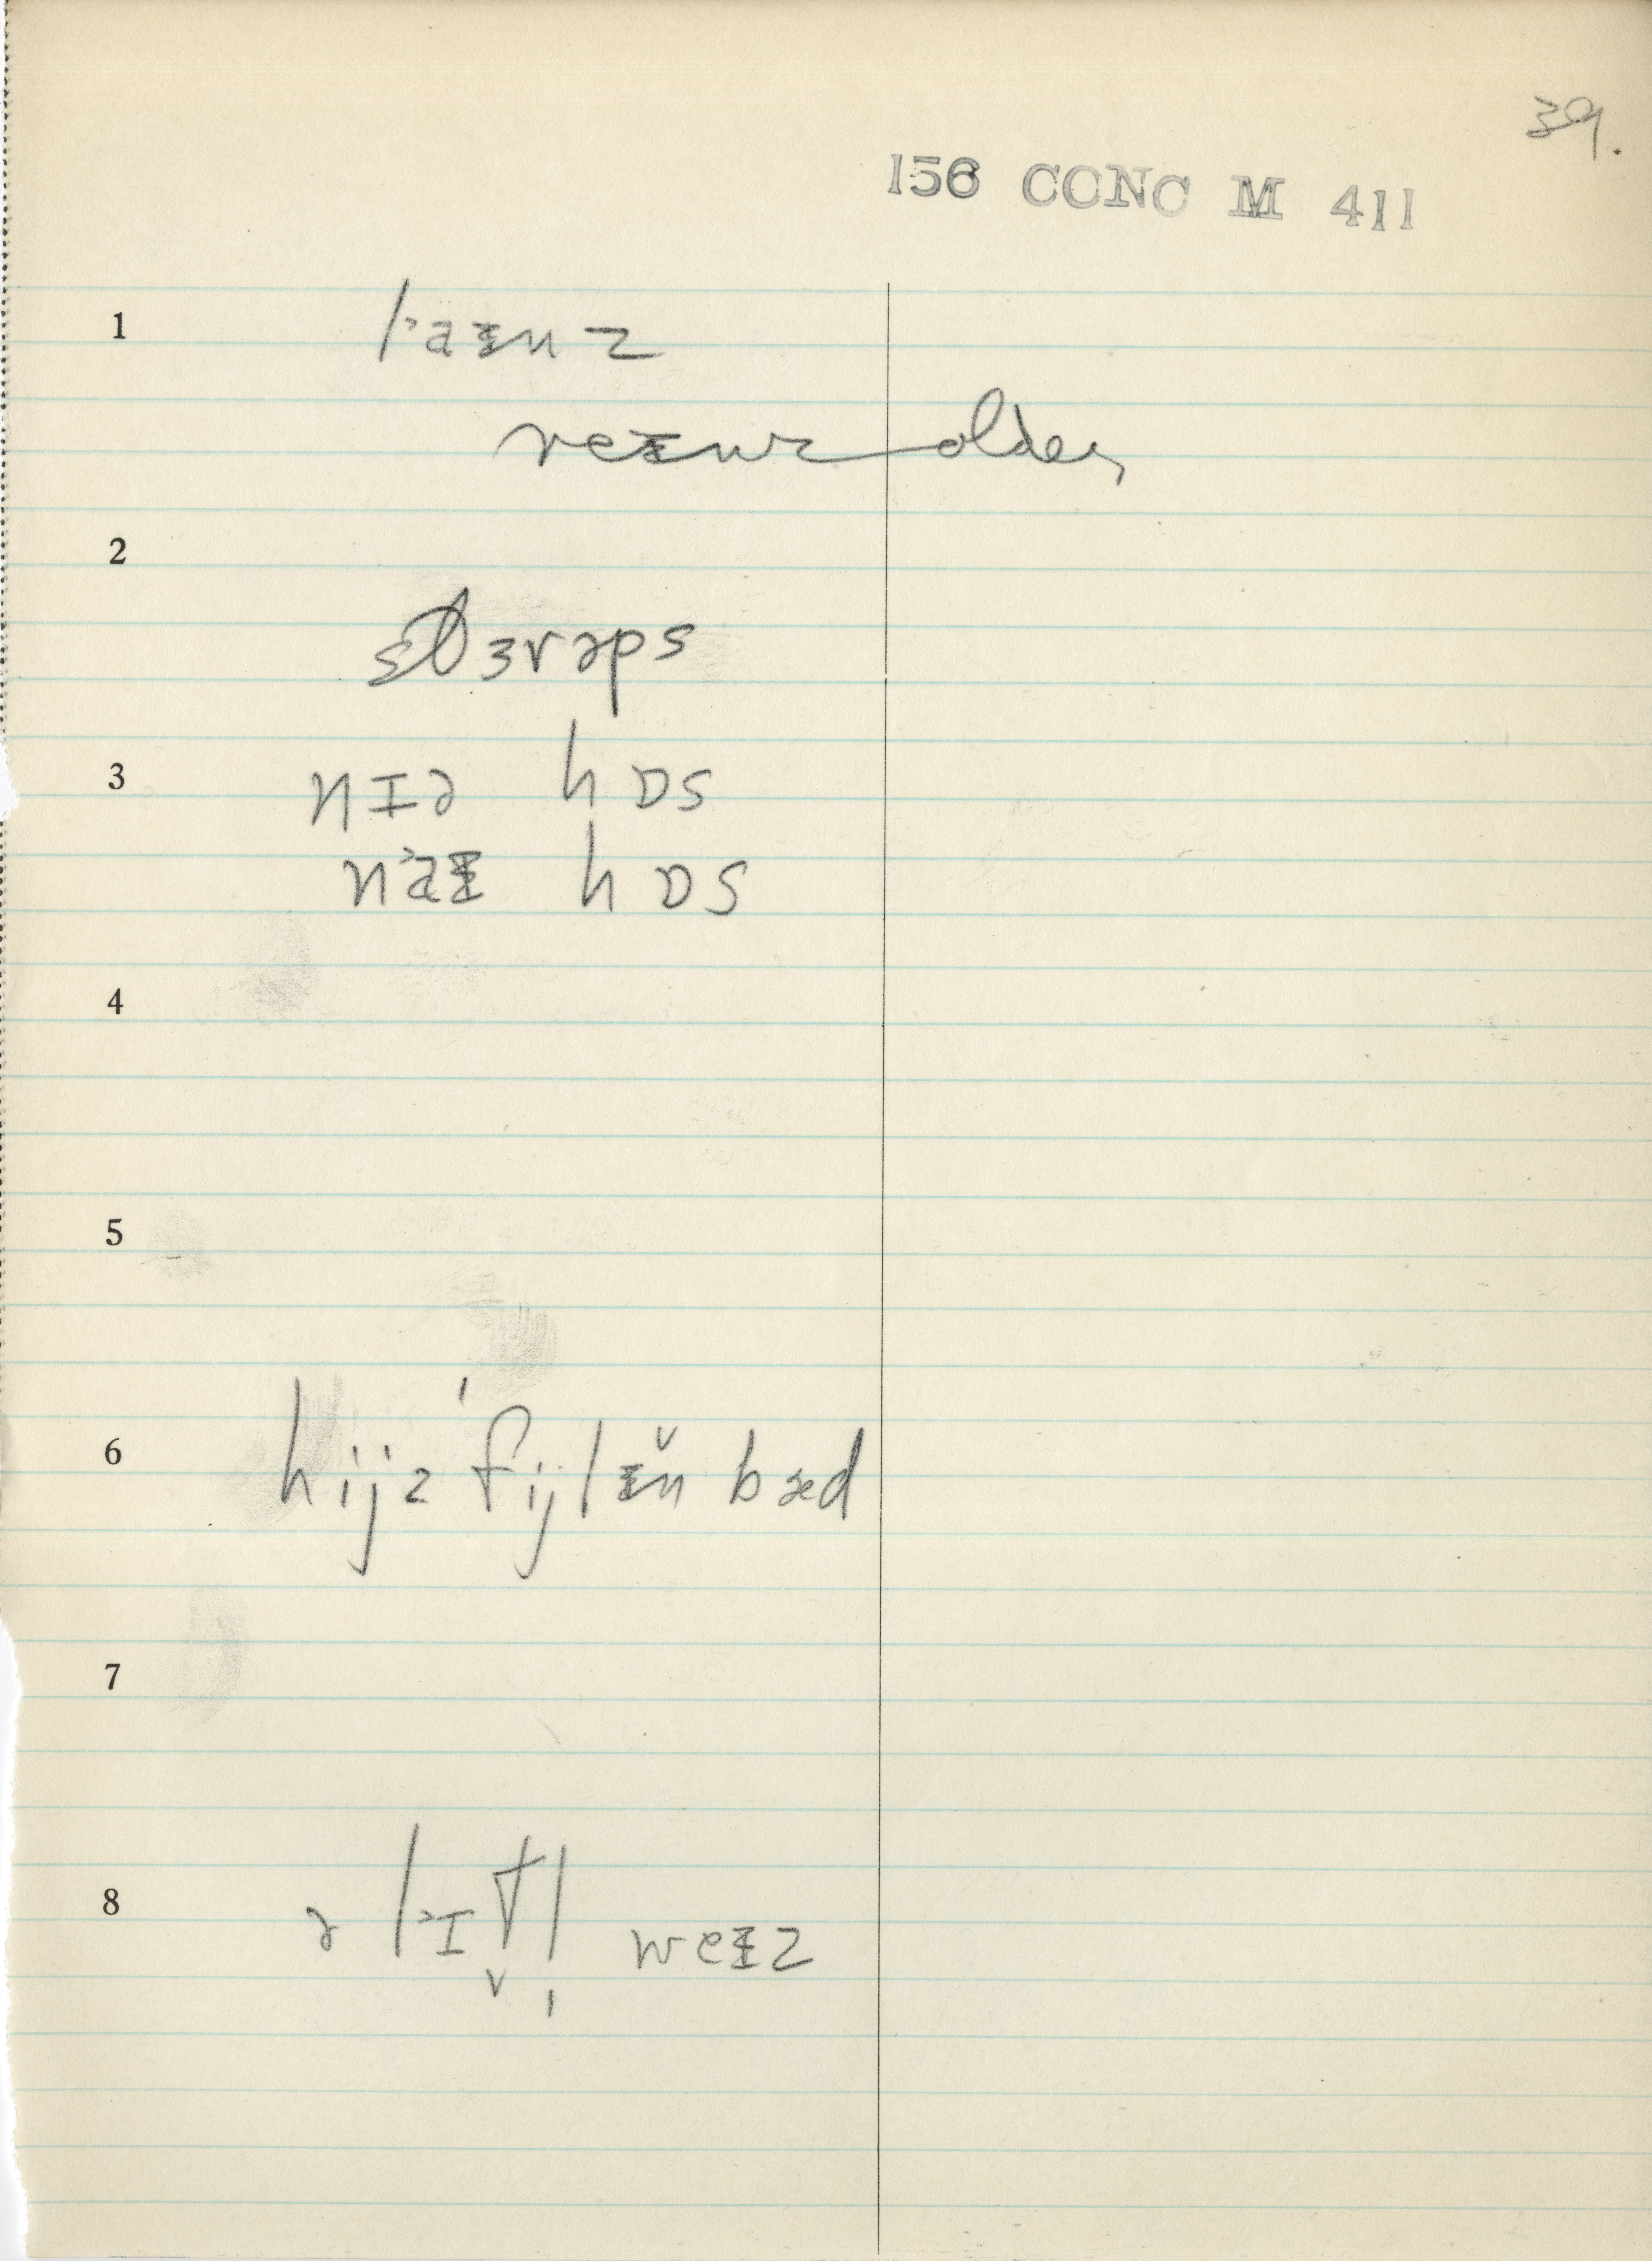 39.
156 CONC M 411
1 laɨnz
reɨnz older
2
stɜrəps
3 nɪə hɒs
naɨ hɒs
4
5
6 hijz fijlɨn bæd
7
8 ə lɪtl weɨz